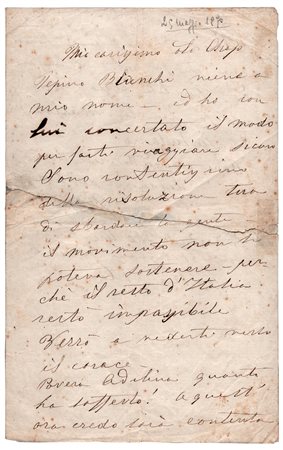 25 maggio 1870
Mio carissimo
Pepino Bianchi viene a
mio nome - ed ho con
lui concertato il modo
per farti viaggiare sicuro
Sono contentissimo
della risoluzione tua
di sbandare la gente
il movimento non si
poteva sostenere per-
chè il resto d'Italia
restò impassibile
Verrò a vederti verso
il
Adelina quanto
ha sofferto! a quest'
ora credo sarà contenta